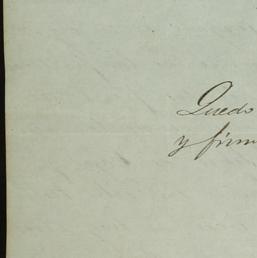 Quedo
y firm